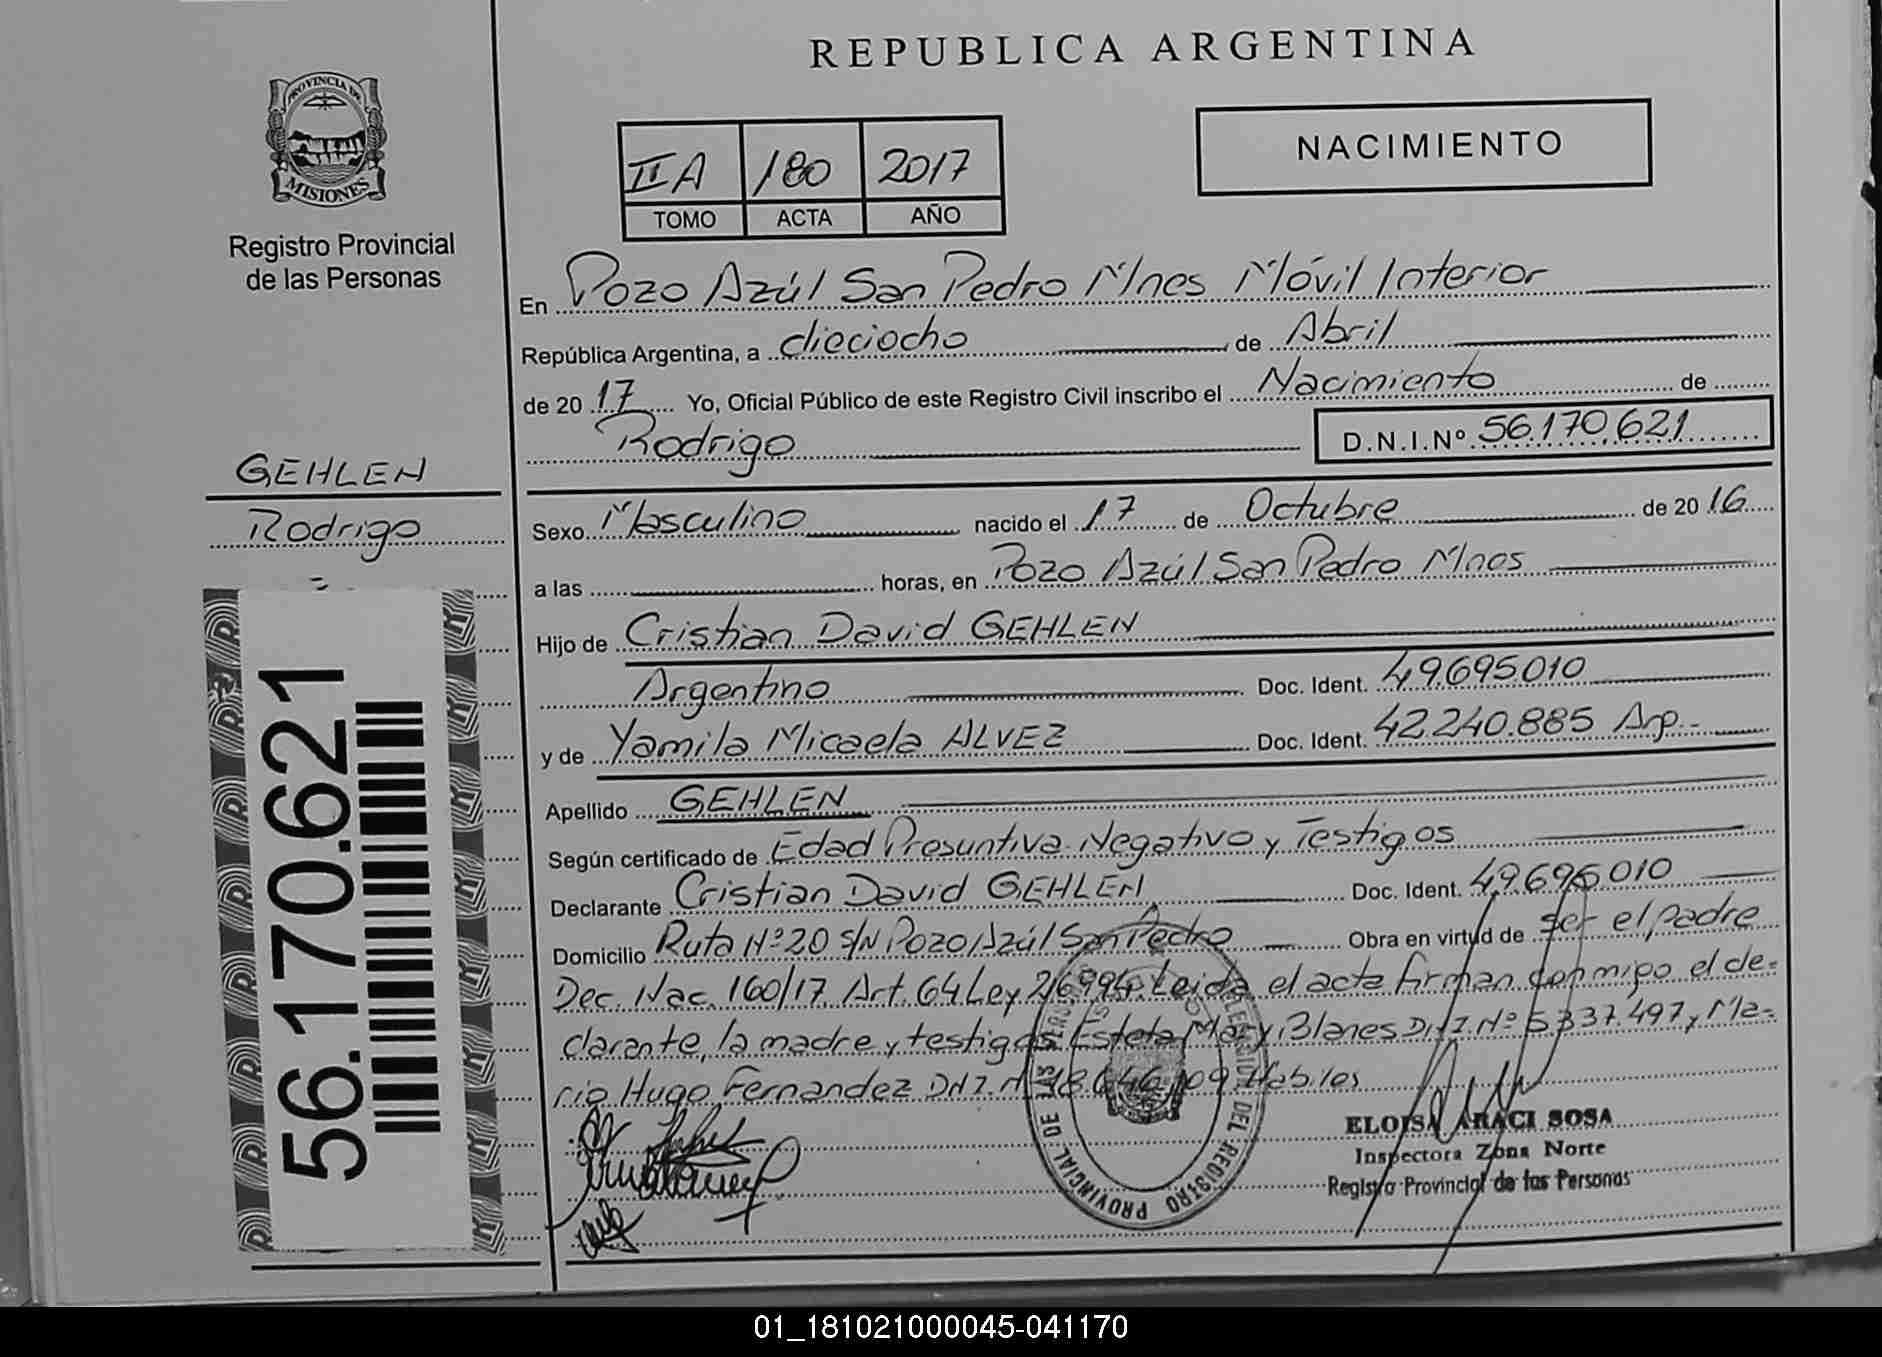 REPUBLICA ARGENTINA
PROVINCIA DE
MISIONES
Registro Provincial
de las Personas
IIA 180 2017
TOMO ACTA AÑO
NACIMIENTO
En Pozo Azúl San Pedro Mnes Móvil Interior
República Argentina, a dieciocho de Abril
de 20 17 Yo, Oficial Público de este Registro Civil inscribo el Nacimiento de
Rodrigo D.N.I.Nº 56.170.621
GEHLEN
Rodrigo
Sexo Masculino nacido el 17 de Octubre de 20 16
a las horas, en Pozo Azúl San Pedro Mnes
Hijo de Cristian David GEHLEN
Argentino Doc. Ident. 49.695.010
y de Yamila Micaela ALVEZ Doc. Ident. 42.240.885 Arg.-
Apellido GEHLEN
Según certificado de Edad Presuntiva Negativo y Testigos
Declarante Cristian David GEHLEN Doc. Ident. 49.695.010
Domicilio Ruta Nº 20 S/N Pozo Azúl San Pedro Obra en virtud de ser el padre
Dec. Nac. 160/17 Art. 64 Ley 26.994. Leida el acta firman conmigo el de=
clarante, la madre y testigos Estela Mary Blanes D.N.I. Nº 5.337.497 y Ma=
rio Hugo Fernandez D.N.I. Nº 18.646.109 Habiles
56.170.621
ELOISA ARACI SOSA
Inspectora Zona Norte
Registro Provincial de las Personas
PROVINCIAL DE LAS
DEL REGISTRO
01_181021000045-041170